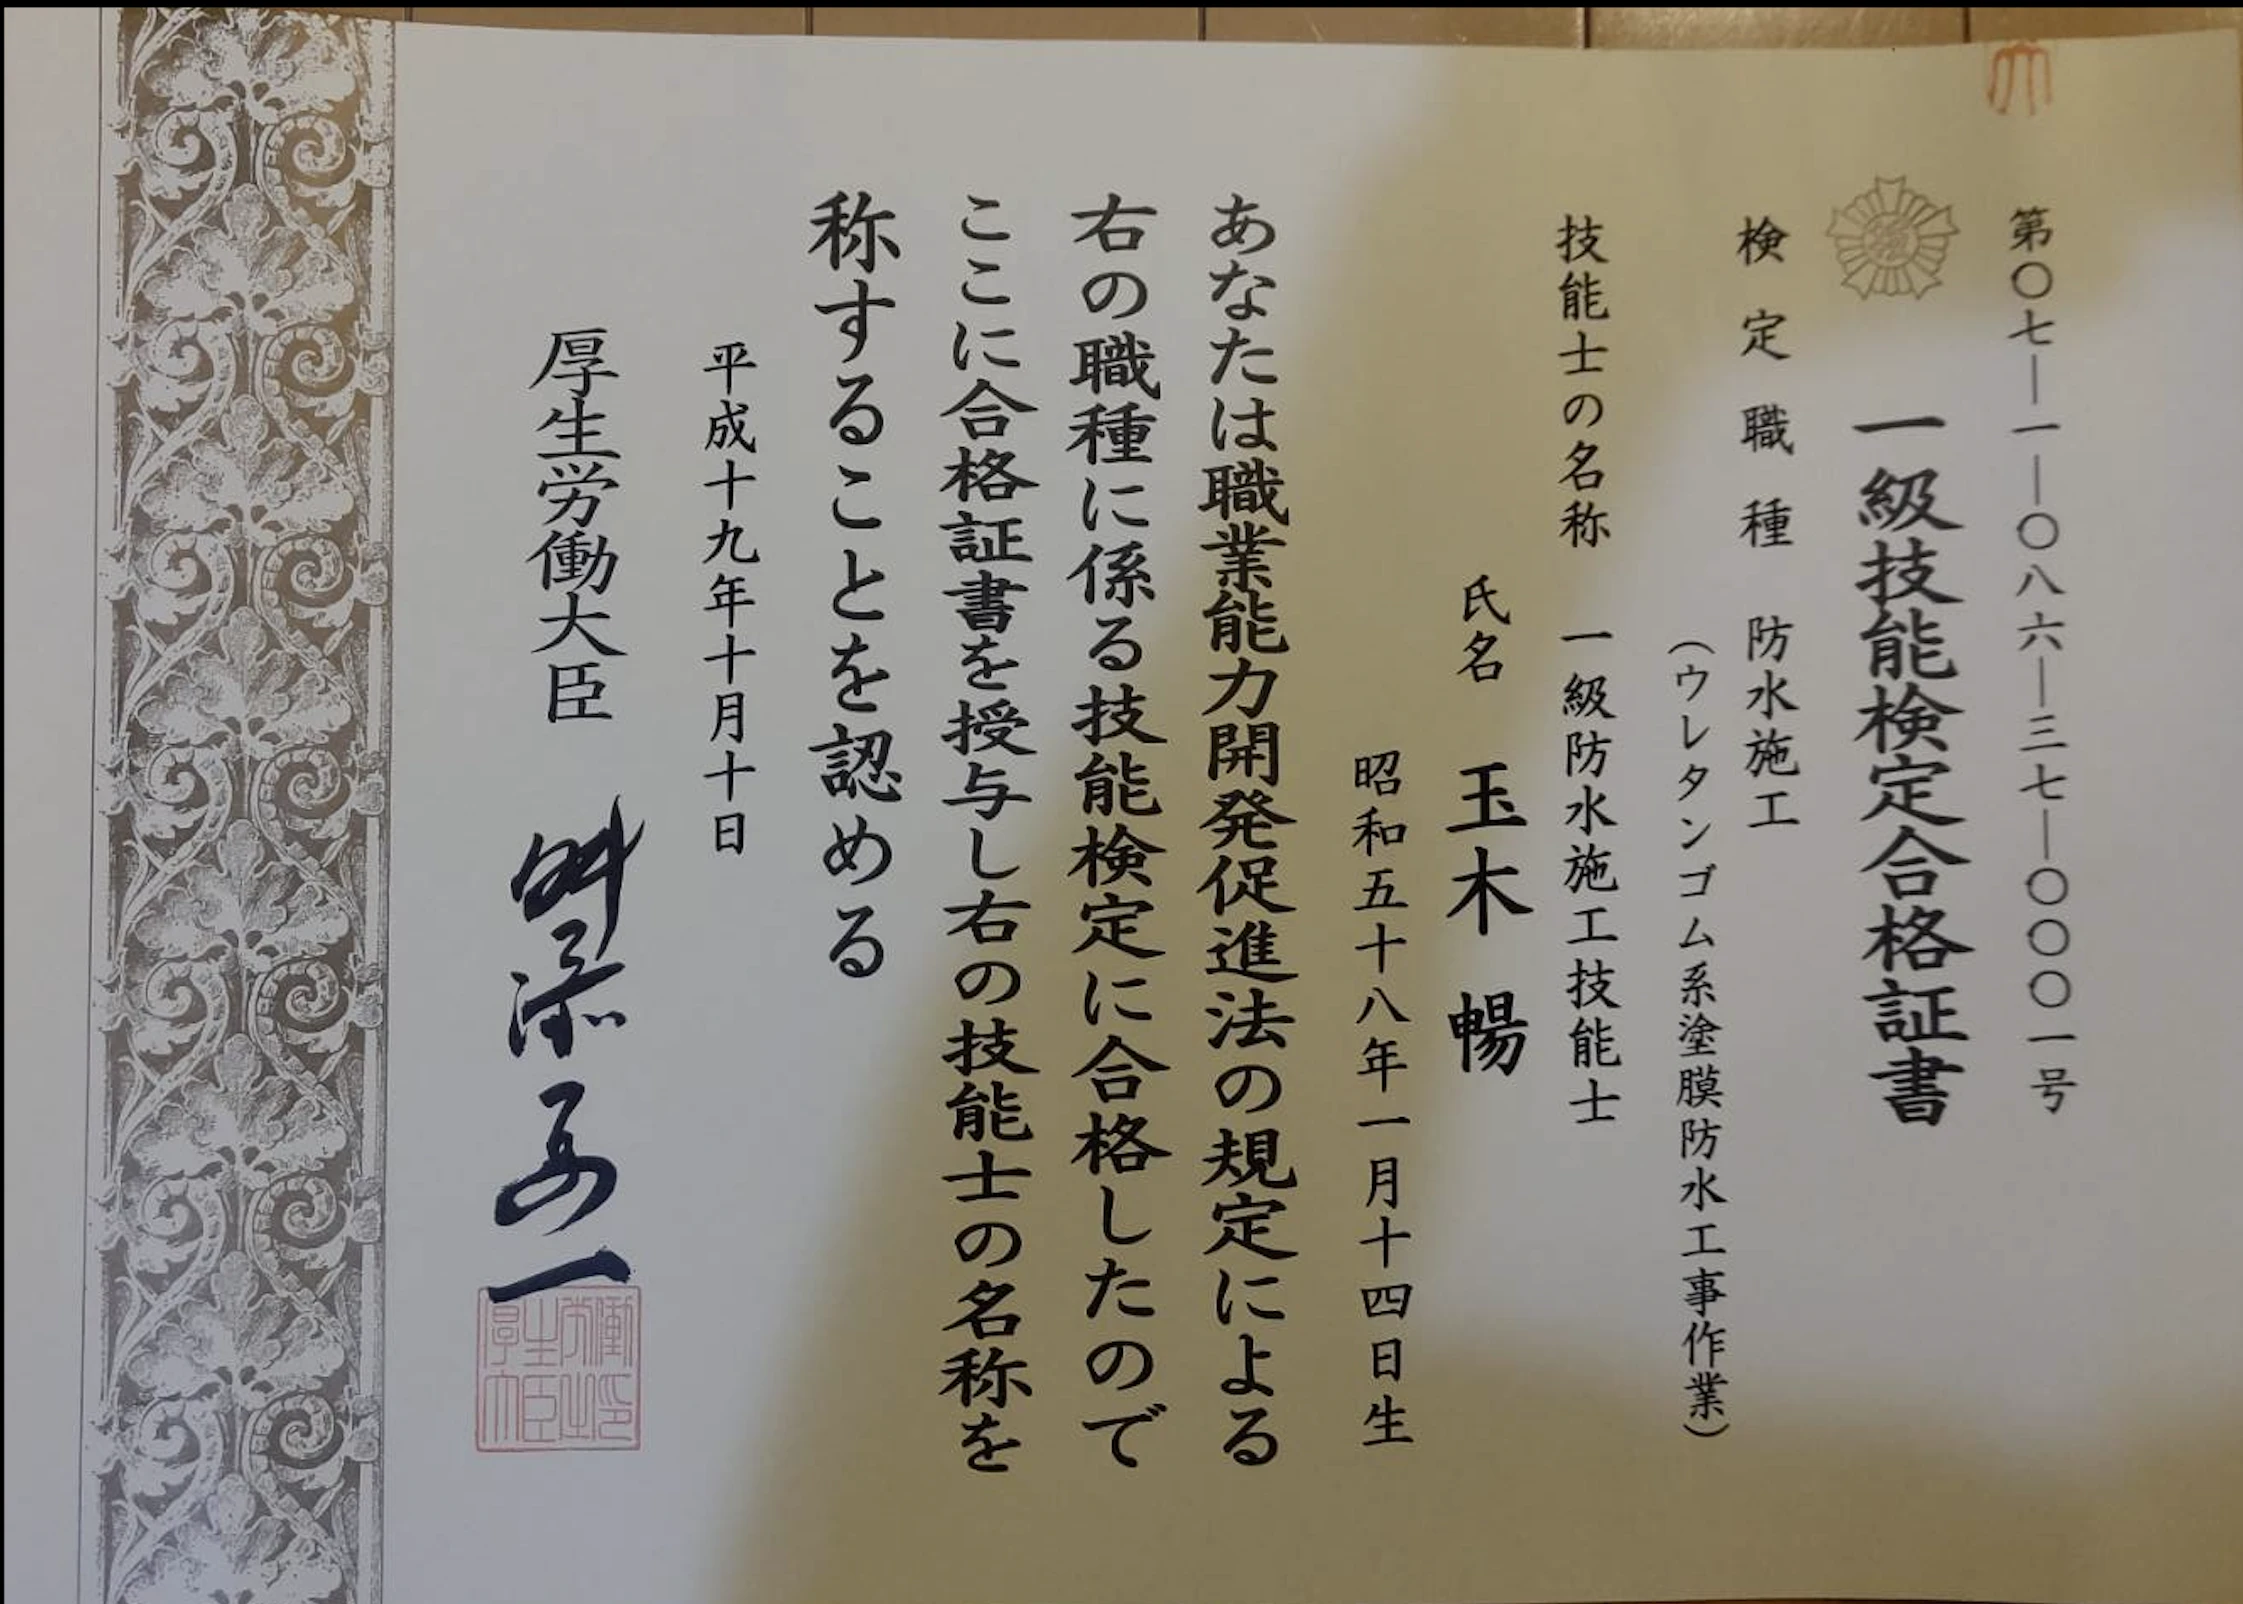 第〇七―一―〇八六―三七―〇〇〇一号
一級技能検定合格証書
検定職種 防水施工
(ウレタンゴム系塗膜防水工事作業)
技能士の名称 一級防水施工技能士
氏名 玉木 暢
昭和五十八年一月十四日生
あなたは職業能力開発促進法の規定による
右の職種に係る技能検定に合格したので
ここに合格証書を授与し右の技能士の名称を
称することを認める
平成十九年十月十日
厚生労働大臣 舛添要一
厚生労働大臣之印